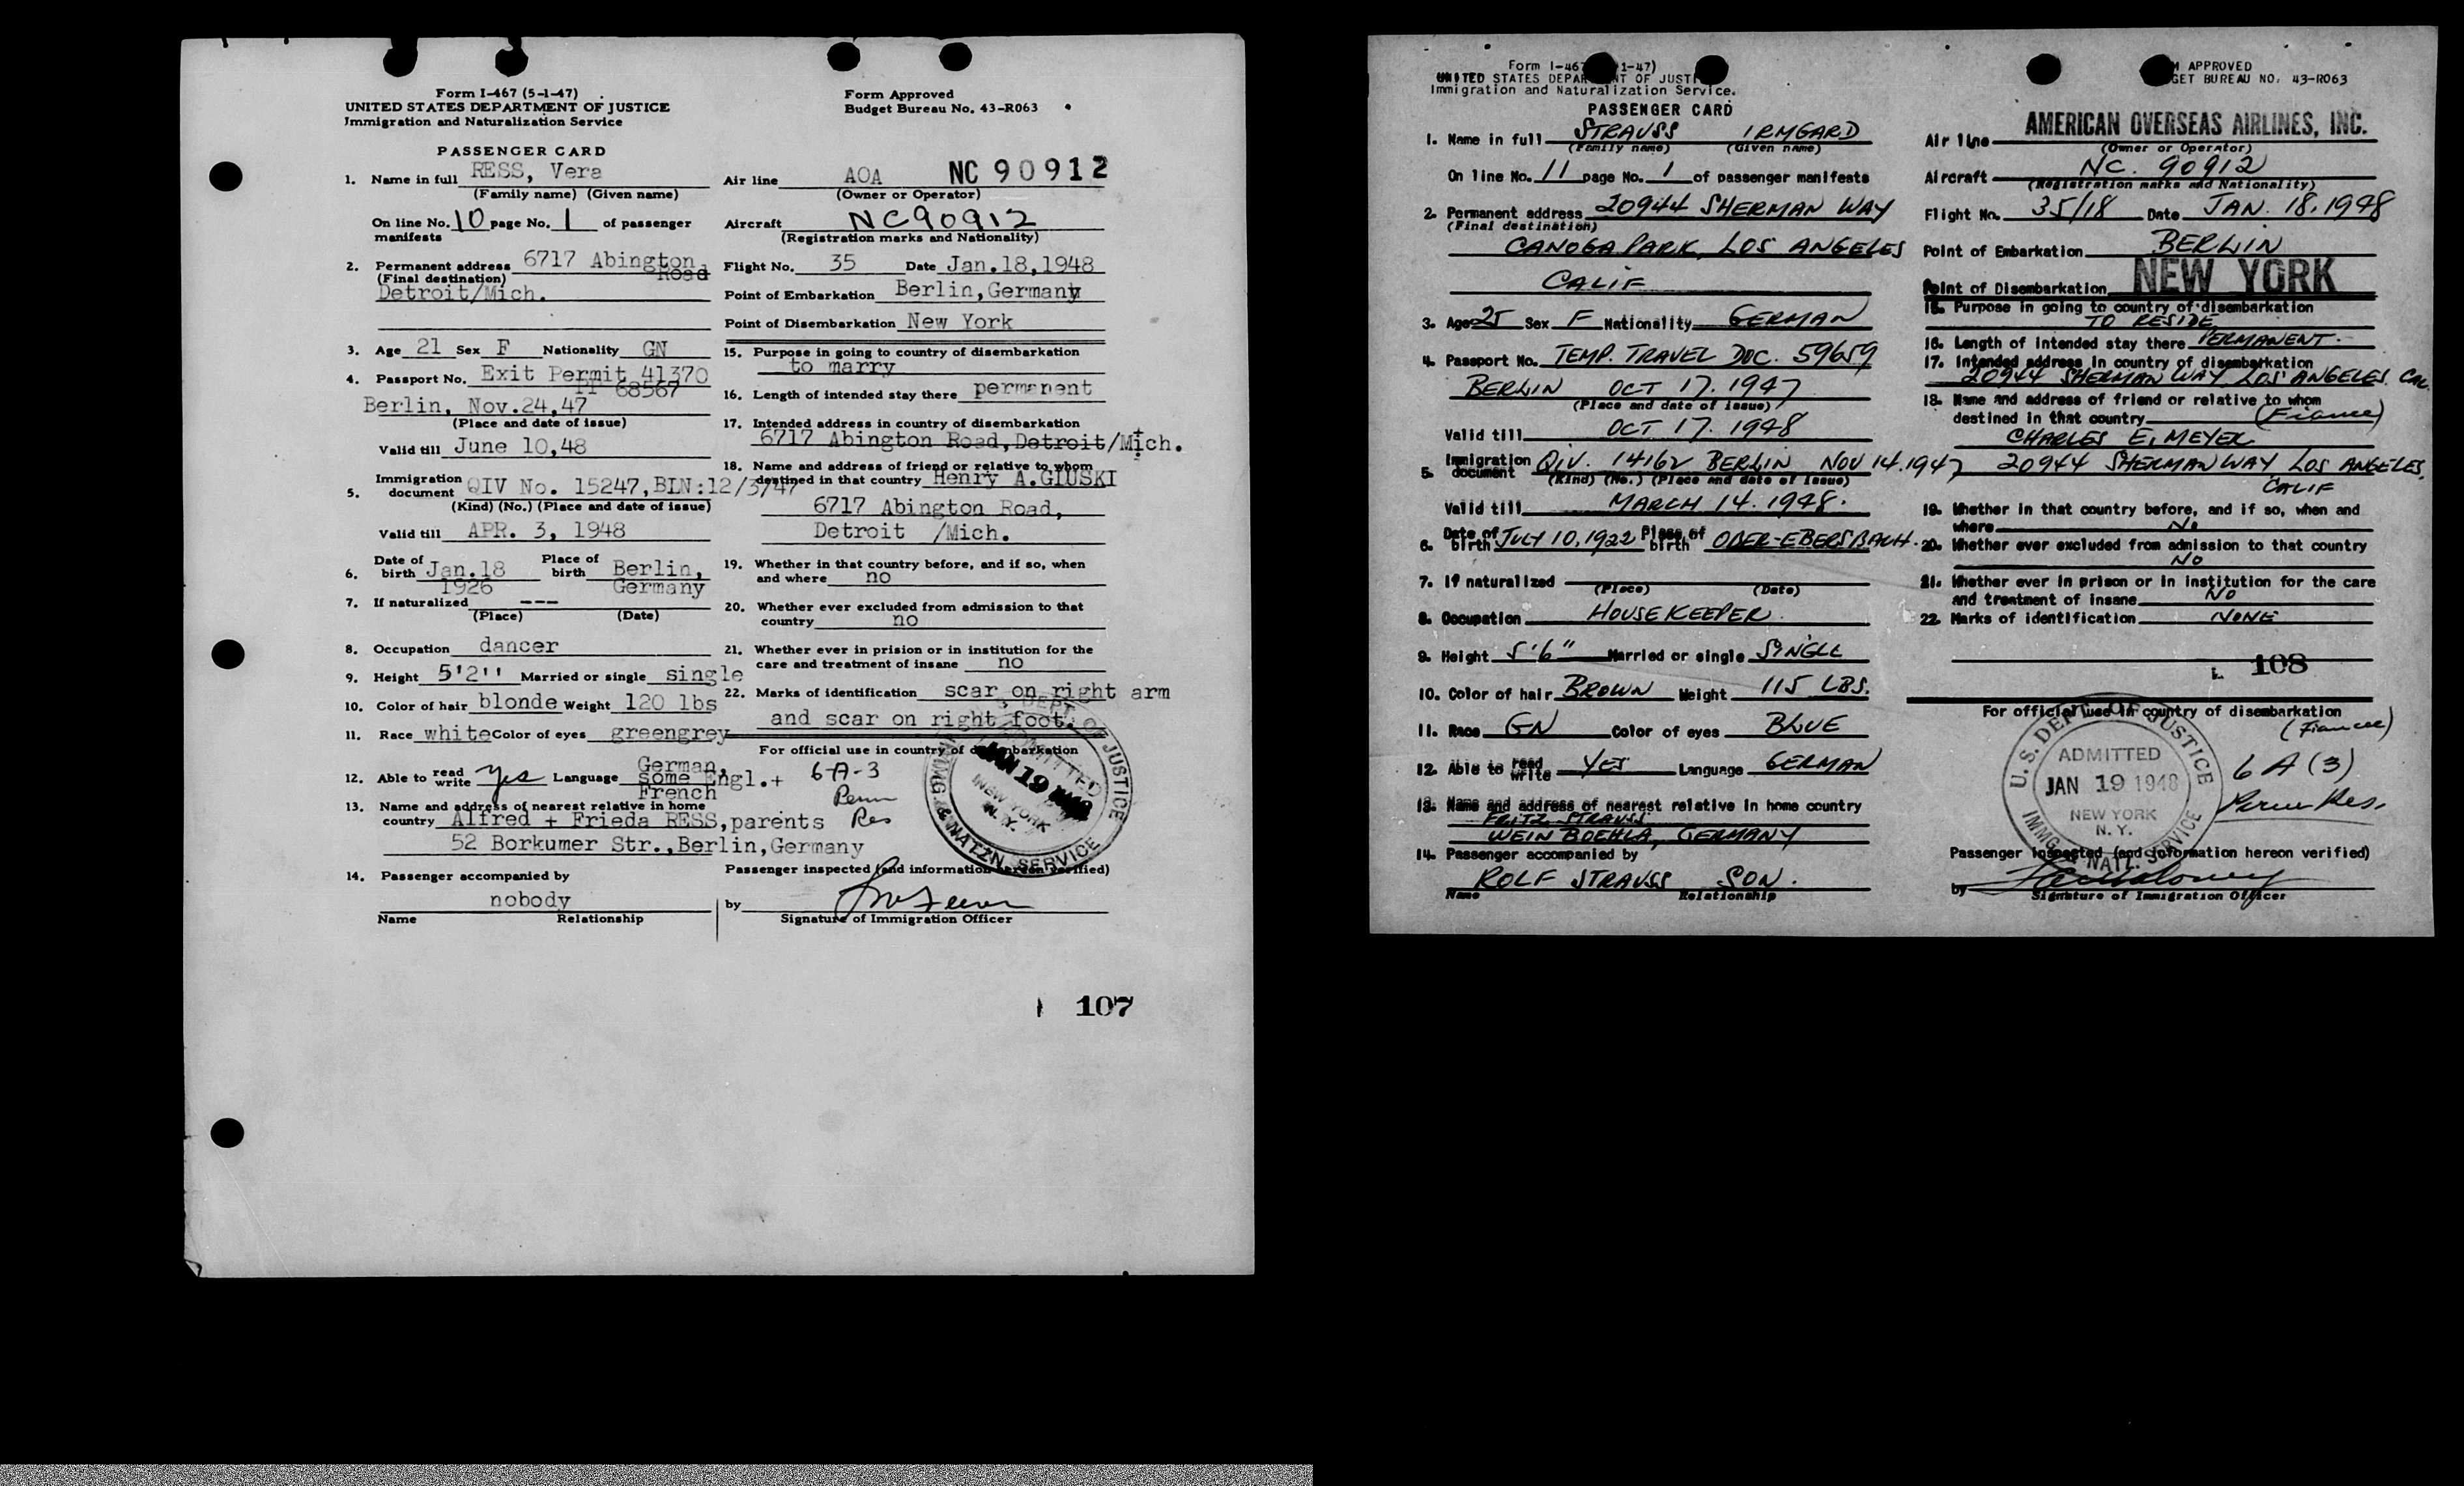 Form I-467 (5-1-47)
UNITED STATES DEPARTMENT OF JUSTICE
Immigration and Naturalization Service
Form Approved
Budget Bureau No. 43-R063
PASSENGER CARD
1. Name in full RESS, Vera
(Family name) (Given name)
On line No. 10 page No. 1 of passenger
manifests
2. Permanent address 6717 Abington
Road
(Final destination)
Detroit/Mich.
3. Age 21 Sex F Nationality GN
4. Passport No. Exit Permit 41370
PP 68567
Berlin, Nov.24,47
(Place and date of issue)
Valid till June 10,48
5. Immigration document QIV No. 15247,BLN:12/3/47
(Kind) (No.) (Place and date of issue)
Valid till APR. 3, 1948
6. Date of birth Jan.18 1926 Place of birth Berlin, Germany
7. If naturalized ---
(Place) (Date)
8. Occupation dancer
9. Height 5'2'' Married or single single
10. Color of hair blonde Weight 120 lbs
11. Race white Color of eyes greengrey
12. Able to read write yes Language German, some Engl.+ French
13. Name and address of nearest relative in home
country Alfred + Frieda RESS, parents
52 Borkumer Str.,Berlin,Germany
14. Passenger accompanied by
nobody
Name Relationship
Air line AOA NC 90912
(Owner or Operator)
Aircraft NC90912
(Registration marks and Nationality)
Flight No. 35 Date Jan.18,1948
Point of Embarkation Berlin,Germany
Point of Disembarkation New York
15. Purpose in going to country of disembarkation
to marry
16. Length of intended stay there permanent
17. Intended address in country of disembarkation
6717 Abington Road,Detroit/Mich.
18. Name and address of friend or relative to whom
destined in that country Henry A.GIUSKI
6717 Abington Road,
Detroit /Mich.
19. Whether in that country before, and if so, when
and where no
20. Whether ever excluded from admission to that
country no
21. Whether ever in prision or in institution for the
care and treatment of insane no
22. Marks of identification scar on right arm
and scar on right foot.
For official use in country of disembarkation
6-A-3
Perm
Res
ADMITTED
JAN 19 1948
NEW YORK
N. Y.
IMMIG & NATZN SERVICE
Passenger inspected (and information hereon verified)
by
Signature of Immigration Officer
107
Form I-467 (5-1-47)
UNITED STATES DEPARTMENT OF JUSTICE
Immigration and Naturalization Service.
APPROVED
GET BUREAU NO. 43-R063
PASSENGER CARD
1. Name in full STRAUSS IRMGARD
(Family name) (Given name)
On line No. 11 page No. 1 of passenger manifests
2. Permanent address 20944 SHERMAN WAY
(Final destination)
CANOGA PARK, LOS ANGELES
CALIF
3. Age 25 Sex F Nationality GERMAN
4. Passport No. TEMP. TRAVEL DOC. 59659
BERLIN OCT 17. 1947
(Place and date of issue)
Valid till OCT 17. 1948
5. Immigration document QIV. 14162 BERLIN NOV 14.1947
(Kind) (No.) (Place and date of issue)
Valid till MARCH 14. 1948.
6. Date of birth JULY 10,1922 Place of birth OBER-EBERSBACH.
7. If naturalized
(Place) (Date)
8. Occupation HOUSEKEEPER.
9. Height 5'6" Married or single SINGLE
10. Color of hair BROWN Weight 115 LBS.
11. Race GN Color of eyes BLUE
12. Able to read write YES Language GERMAN
13. Name and address of nearest relative in home country
FRITZ STRAUSS
WEIN BOEHLA, GERMANY
14. Passenger accompanied by
ROLF STRAUSS SON.
Name Relationship
Air line AMERICAN OVERSEAS AIRLINES, INC.
(Owner or Operator)
Aircraft NC. 90912
(Registration marks and Nationality)
Flight No. 35/18 Date JAN. 18. 1948
Point of Embarkation BERLIN
Point of Disembarkation NEW YORK
15. Purpose in going to country of disembarkation
TO RESIDE
16. Length of intended stay there PERMANENT.
17. Intended address in country of disembarkation
20944 SHERMAN WAY LOS ANGELES CAL.
18. Name and address of friend or relative to whom
destined in that country (Fiance)
CHARLES E. MEYER
20944 SHERMAN WAY LOS ANGELES,
CALIF
19. Whether in that country before, and if so, when and
where No
20. Whether ever excluded from admission to that country
No
21. Whether ever in prison or in institution for the care
and treatment of insane No
22. Marks of identification NONE
108
For official use in country of disembarkation
(Fiancee)
6 A (3)
Perm Res.
U. S. DEPT. OF JUSTICE
ADMITTED
JAN 19 1948
NEW YORK
N. Y.
IMMIG. & NATZ. SERVICE
Passenger inspected (and information hereon verified)
by
Signature of Immigration Officer